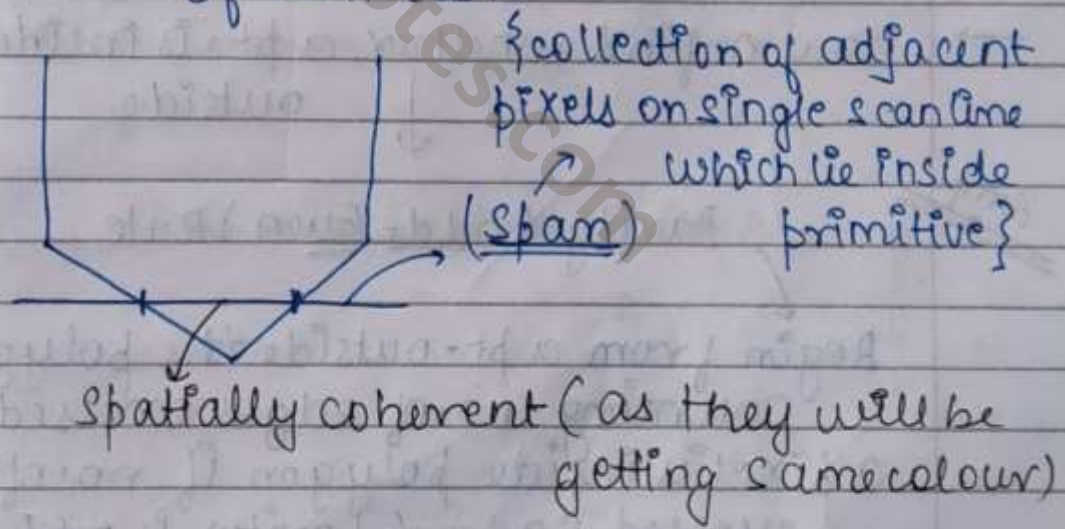 {collection of adjacent
pixels on single scanline
which lie inside
(Span) primitive}
Spatially coherent (as they will be
getting same colour)